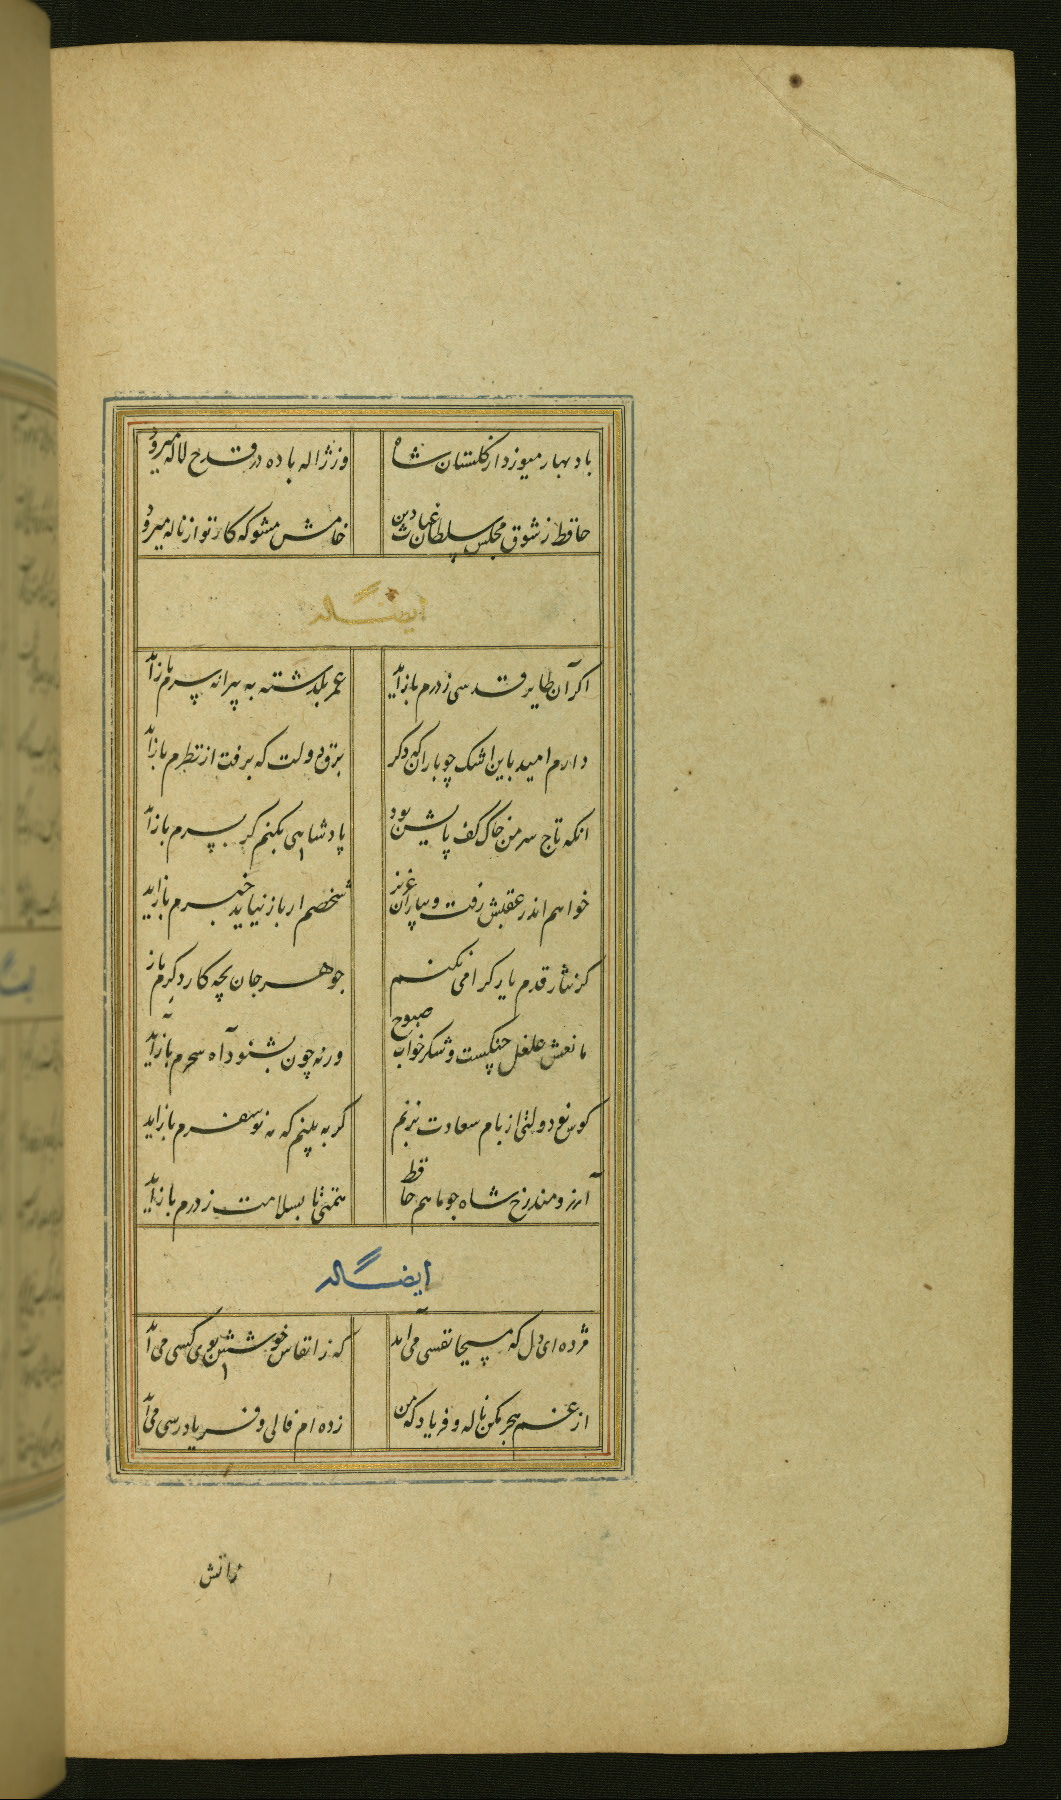 باد بهار میوزد از کلستان شاه
وز ژاله باده در قدح لاله میرود
حافظ ز شوق مجلس سلطان غیاث دین
خامش مشو که کار تو از ناله میرود
ایضاً له
اکر آن طایر قدسی ز درم باز آید
عمر بگذشته به پیرانه سرم باز آید
دارم امید باین اشک چو باران که دکر
برق دولت که برفت از نظرم باز آید
انکه تاج سر من خاک کف پایش بود
پادشاهی بکنم کر بسرم باز آید
خواهم اندر عقبش رفت و بیاران عزیز
شخصم ار باز نیاید خبرم باز اید
کر نثار قدم یار کرامی نکنم
جوهر جان بچه کار دکرم باز
مانعش غلغل چنکست و شکر خواب صبوح
ورنه چون بشنود آه سحرم باز آید
کوس نو دولتی از بام سعادت بزنم
کر به بینم که مه نو سفرم باز اید
آرزومند رخ شاه چو ماهم حافظ
همتی تا بسلامت ز درم باز آید
ایضاً له
مژده ای دل که مسیحا نفسی می آید
که ز انفاس خوشش بوی کسی می آید
از غم هجر مکن ناله و فریاد که من
زده ام فالی و فریاد رسی می آید
زاتش